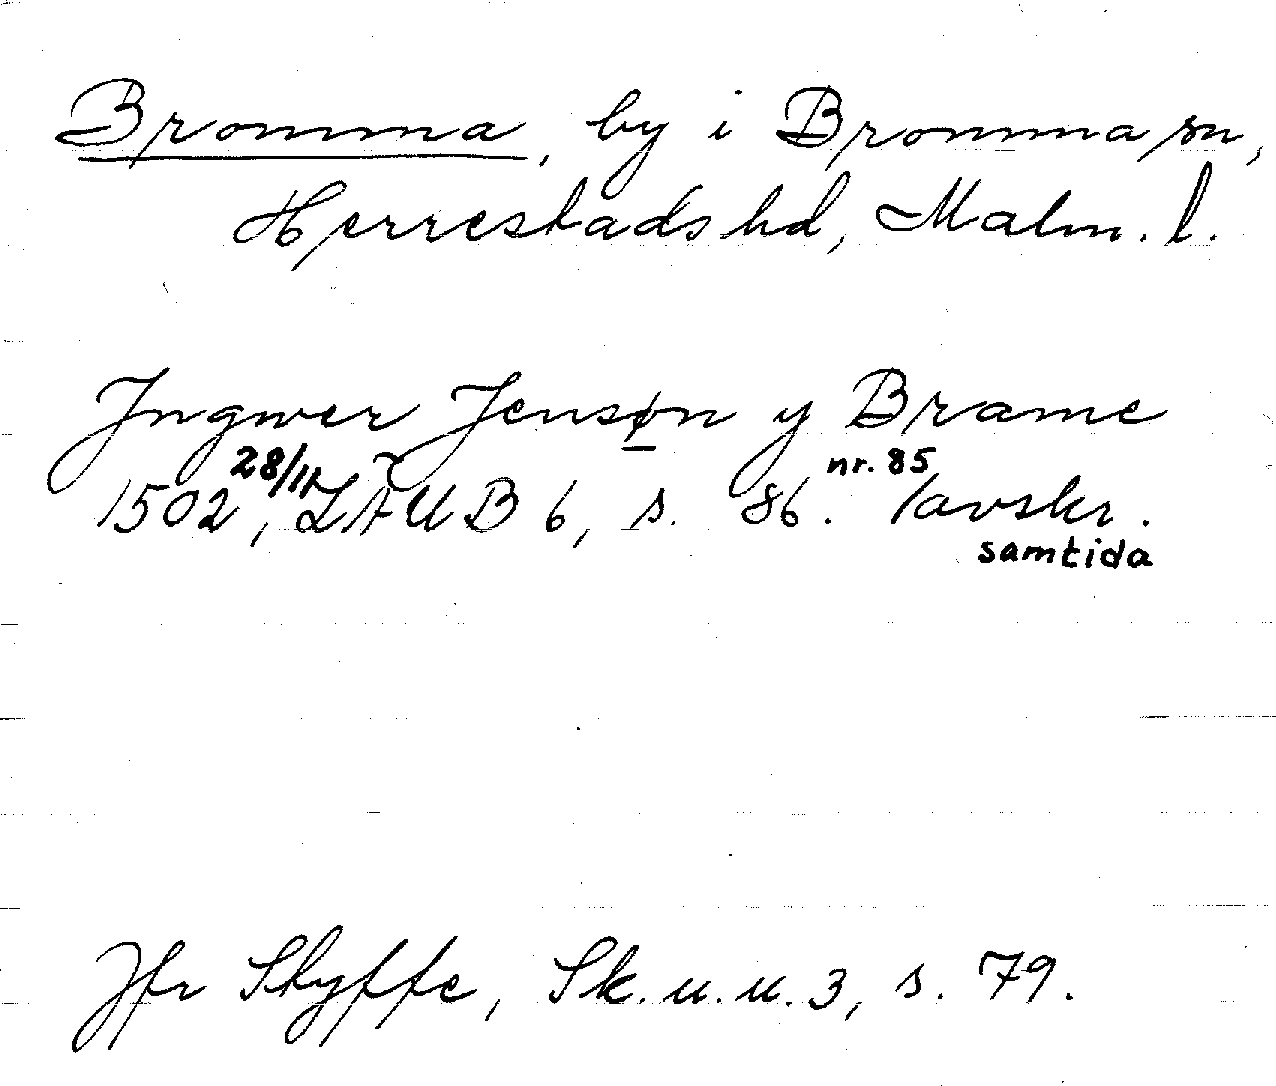 Bromma, by i Bromma sn,
Herrestads hd, Malm. l.
Ingwer Jensøn y Brame
28/11 nr. 85
1502, LÄUB 6, s. 86. /avskr.
samtida
Jfr Styffe, Sk. u. u. 3, s. 79.